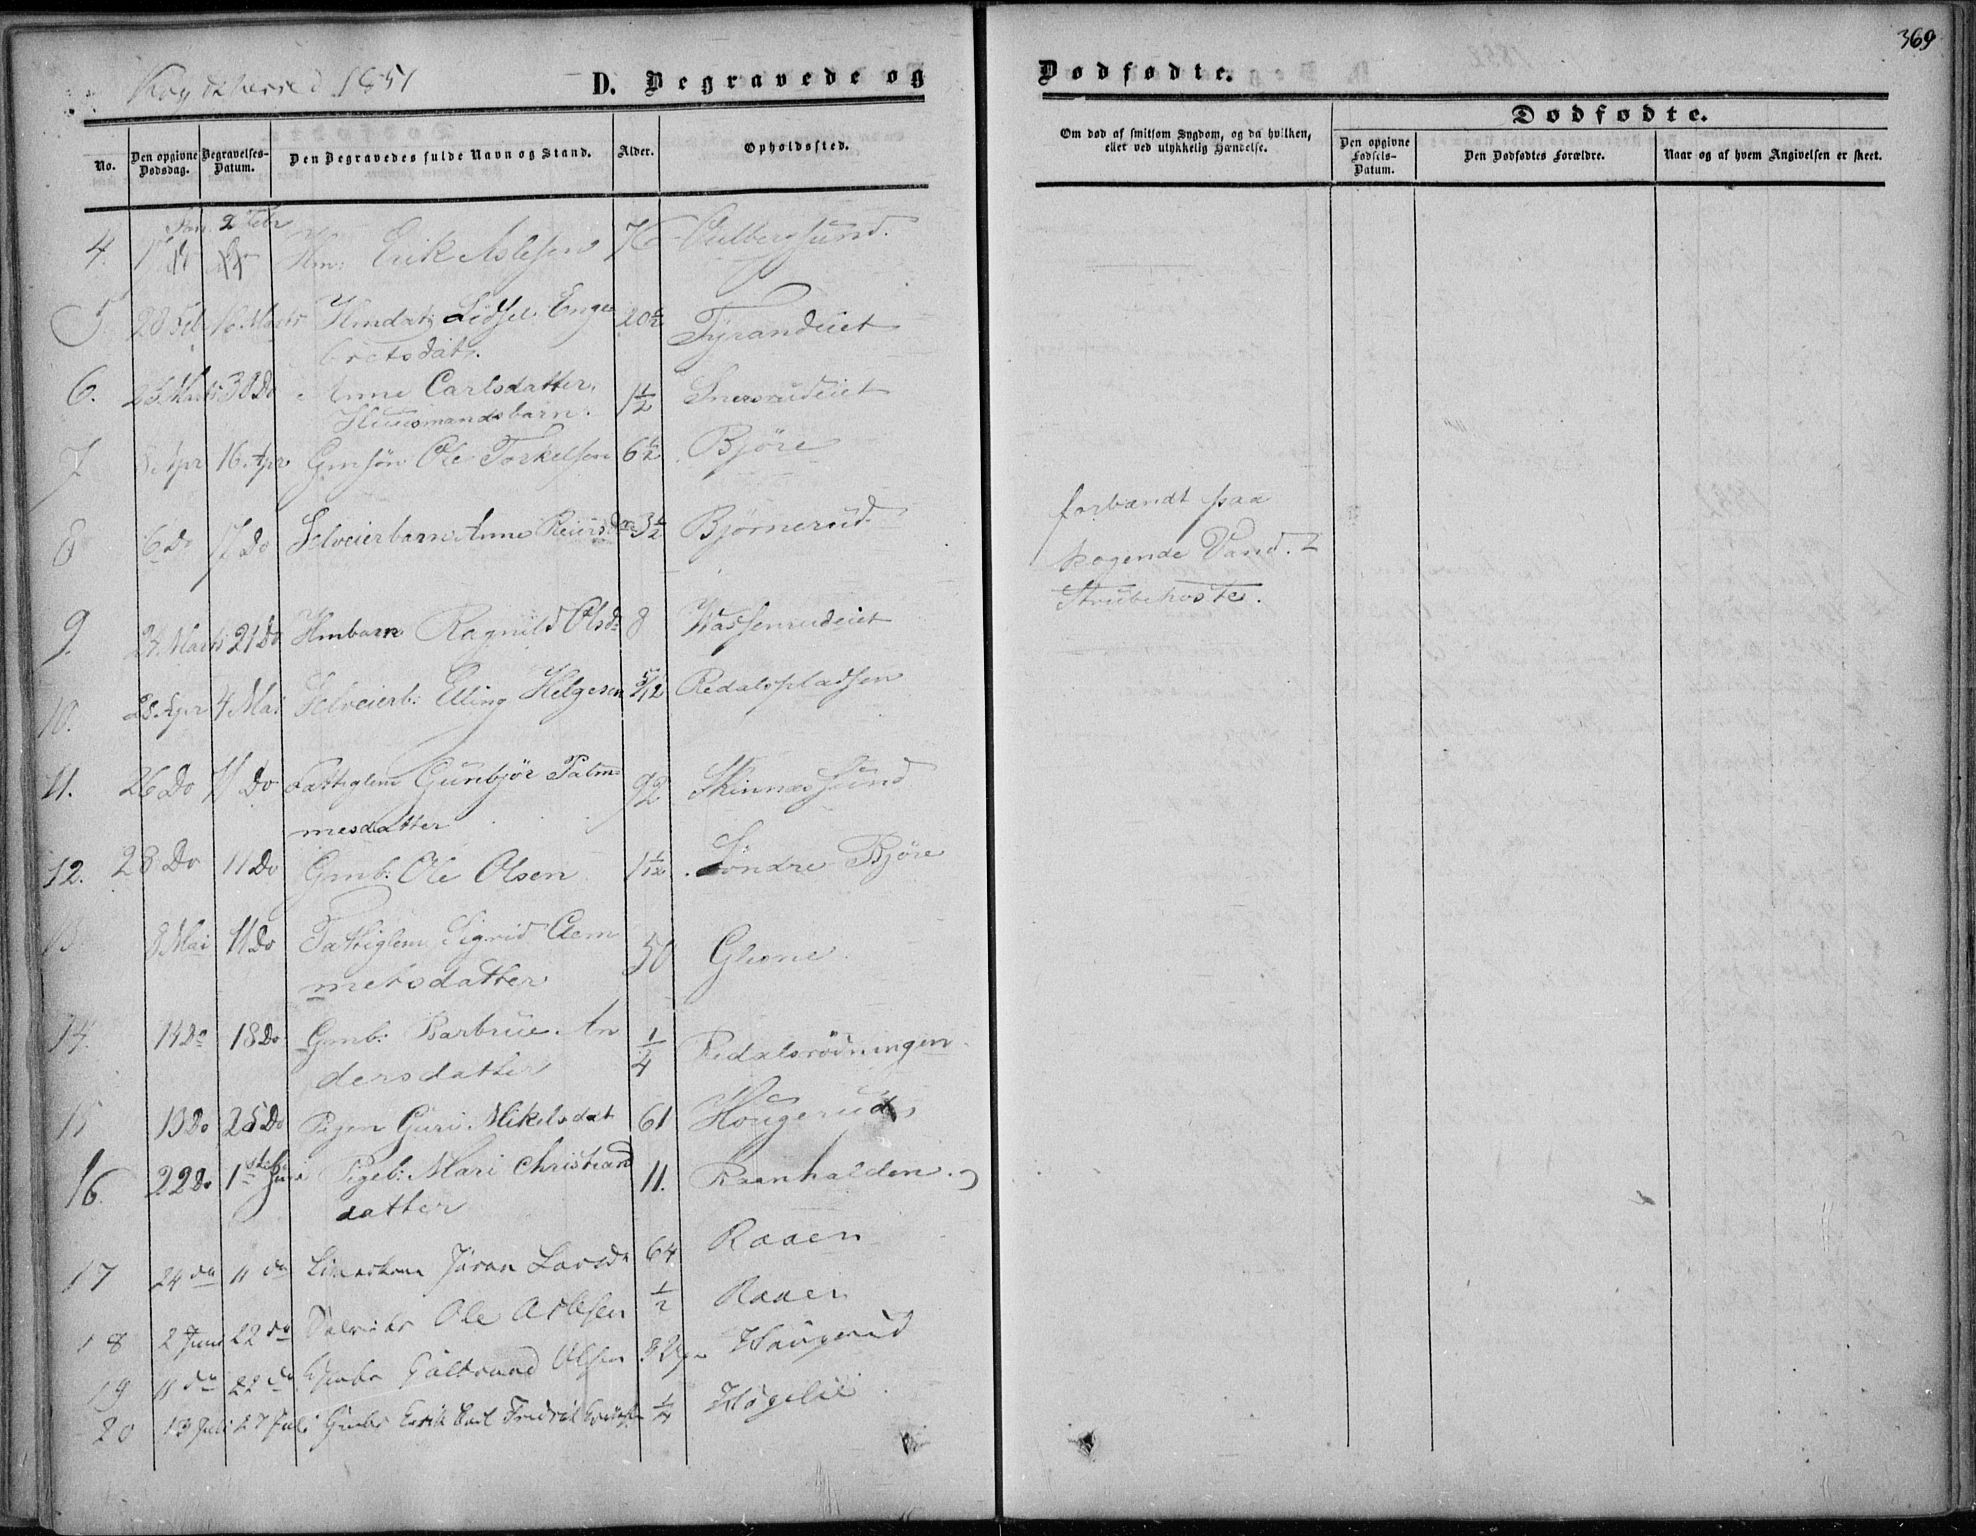 369
1851
D. Begravede og Dødfødte.
No.
Den opgivne Dødsdag.
Begravelses-Datum.
Den Begravedes fulde Navn og Stand.
Alder.
Opholdssted.
Om død af smitsom Sygdom, og da hvilken, eller ved ulykkelig Hændelse.
Dødfødte.
Den opgivne Fødsels-Datum.
Den Dødfødtes Forældre.
Naar og af hvem Angivelsen er skeet.
2 Febr
4. Hm: Erik Aslesen 76
5. 28 Feb 16 Marts Hmdat: Enge 20½ Tyrandeiet
bretsdat.
6. 30 Do Anne Carlsdatter, 1½ Snersrudeiet
Huusmandsbarn.
7 8 Apr 16 Apr Gmsøn Ole Torkelsen 6½ Björe
8 6 Do 17 Do Selveierbarn Anne Reiersd 3½ Bjørnerud
forbrændt paa
kogende Vand.
Strubehoste.
9. 24 Marts 21 Do Hmbarn Ragnild Olsd 8 Wassenrudeiet
10. 28 Apr 4 Mai Selveierb: Elling Helgesen 5/12 Redalspladsen
11. 26 Do 11 Do Fattiglem Gunbjör Palm 92 Skinnessund
mesdatter
12. 28 Do 11 Do Gmb: Ole Olsen 1 1/12 Söndre Björe
13 8 Mai 11 Do Fattiglem Sigrid Clem 50 Glesne
metsdatter
14. 14 Do 18 Do Gmb: Barbrue An ¼ Redalsrödningen
dersdatter
15 13 Do 25 Do Pigen Guri Mikelsdat 61 Hougerud
16. 22 Do 1ste Juni Pigeb: Mari Christians 11. Raenhalden
datter
17 24 do 11 do Jöran Larsd 64 Raaen
18 2 Juni 22 do Ole Aslesen ½ Raaen
19 11 do 22 do Olsen 3 Haugerud
20 13 Juli 27 Juli Gmbr Erik Carl Fredrik ¼ Högelie